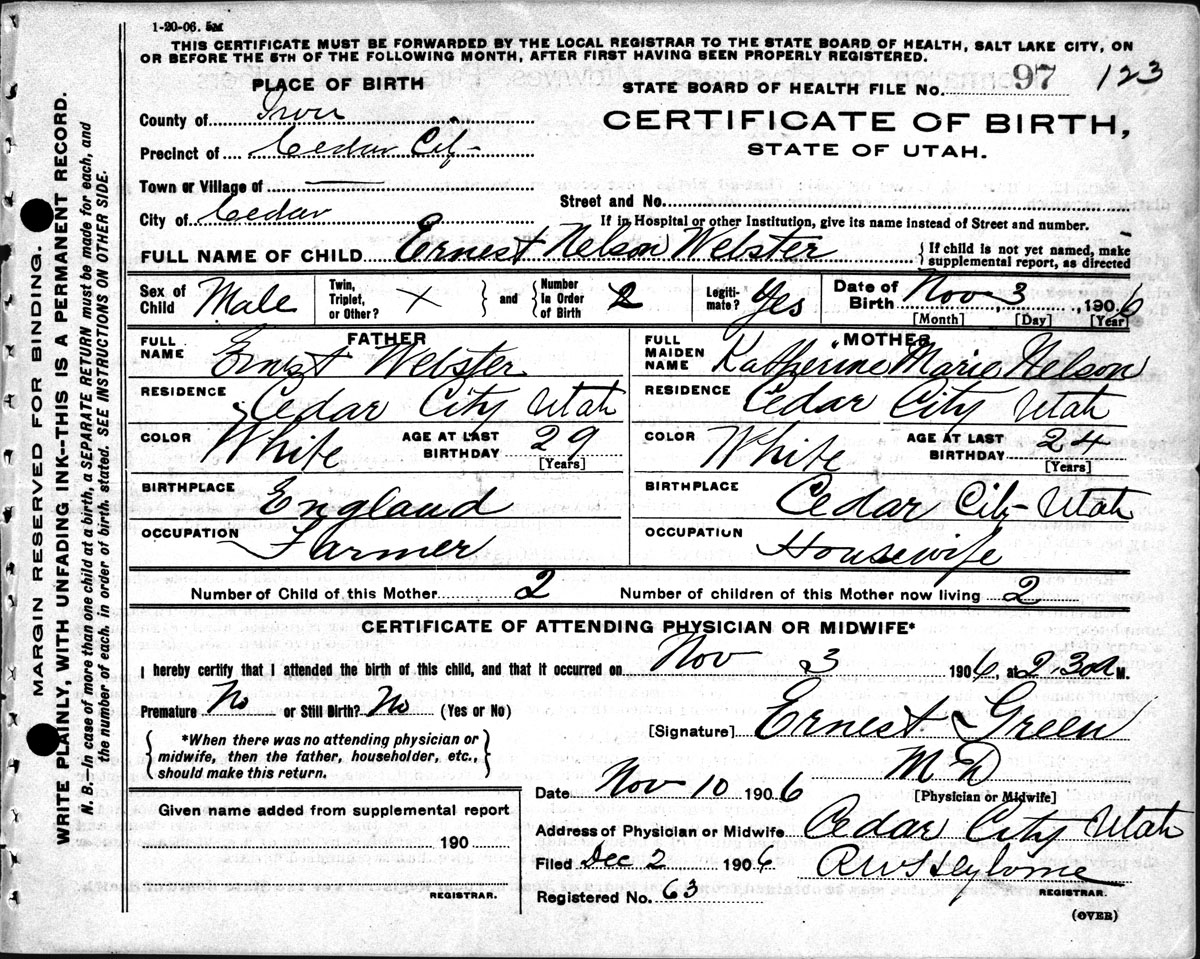 1-20-06. 5M
THIS CERTIFICATE MUST BE FORWARDED BY THE LOCAL REGISTRAR TO THE STATE BOARD OF HEALTH, SALT LAKE CITY, ON
OR BEFORE THE 5TH OF THE FOLLOWING MONTH, AFTER FIRST HAVING BEEN PROPERLY REGISTERED.
PLACE OF BIRTH
STATE BOARD OF HEALTH FILE No. 97 123
County of Iron
CERTIFICATE OF BIRTH,
Precinct of Cedar City
STATE OF UTAH.
Town or Village of
Street and No.
City of Cedar
If in Hospital or other Institution, give its name instead of Street and number.
FULL NAME OF CHILD Ernest Nelson Webster { If child is not yet named, make supplemental report, as directed
Sex of Child Male Twin, Triplet, or Other? X } and { Number In Order of Birth 2 Legiti-mate? Yes Date of Birth Nov 3, 1906
[Month] [Day] [Year]
FATHER
MOTHER
FULL NAME Ernest Webster
FULL MAIDEN NAME Katherine Marie Nelson
RESIDENCE Cedar City Utah
RESIDENCE Cedar City Utah
COLOR White AGE AT LAST BIRTHDAY 29 [Years]
COLOR White AGE AT LAST BIRTHDAY 24 [Years]
BIRTHPLACE England
BIRTHPLACE Cedar City Utah
OCCUPATION Farmer
OCCUPATION Housewife
Number of Child of this Mother 2 Number of children of this Mother now living 2
CERTIFICATE OF ATTENDING PHYSICIAN OR MIDWIFE*
I hereby certify that I attended the birth of this child, and that it occurred on Nov 3 1906, at 2.30 a M.
Premature No or Still Birth? No (Yes or No)
[Signature] Ernest Green
M D
[Physician or Midwife]
{ *When there was no attending physician or
midwife, then the father, householder, etc.,
should make this return. }
Date Nov 10 1906
Given name added from supplemental report
190
REGISTRAR.
Address of Physician or Midwife Cedar City Utah
Filed Dec 2 1906
REGISTRAR.
Registered No. 63
(OVER)
MARGIN RESERVED FOR BINDING.
WRITE PLAINLY, WITH UNFADING INK--THIS IS A PERMANENT RECORD.
N. B.--In case of more than one child at a birth, a SEPARATE RETURN must be made for each, and
the number of each, in order of birth, stated. SEE INSTRUCTIONS ON OTHER SIDE.